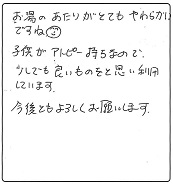 お湯のあたりがとてもやわらかい
ですね☺
子供がアトピー持ちなので、
少しでも良いものをと思い利用
しています。
今後ともよろしくお願いします。